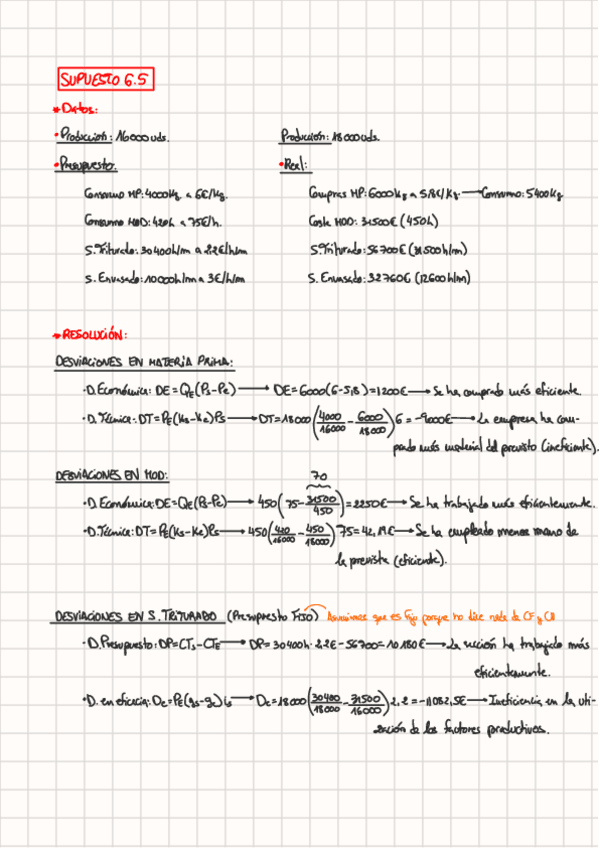 SUPUESTO 6.5
* Datos:
• Producción: 16000 uds. Producción: 18000 uds.
• Presupuesto. • Real:
Consumo MP: 4000kg a 6€/kg. Compras MP: 6000kg a 5,8€/kg. → Consumo: 5400kg
Consumo MOD: 420h a 75€/h. Coste MOD: 31500€ (450h)
S. Triturado: 30400h/m a 2,2€/h/m S. Triturado: 56700€ (31500h/m)
S. Envasado: 10000h/m a 3€/h/m S. Envasado: 32760€ (12600h/m)
→ RESOLUCIÓN:
DESVIACIONES EN MATERIA PRIMA:
• D. Económica: DE = QE (Ps-Pe) → DE = 6000(6-5,8) = 1200€ → Se ha comprado más eficiente.
• D. Técnica: DT = PE (Ks-Ke) Ps → DT = 18000 (4000/16000 - 6000/18000) 6 = -9000€ → La empresa ha com-
prado más material del previsto (ineficiente).
DESVIACIONES EN MOD: 70
• D. Económica: DE = Qe (Ps-Pe) → 450 (75 - 31500/450) = 2250€ → Se ha trabajado más eficientemente.
• D. Técnica: DT = PE (Ks-Ke) Ps → 450 (420/16000 - 450/18000) 75 = 42,19€ → Se ha empleado menos mano de
la prevista (eficiente).
DESVIACIONES EN S. TRITURADO (Presupuesto FIJO) Asumimos que es fijo porque no dice nada de CF y CV
• D. Presupuesto: DP = CTs - CTE → DP = 30400h · 2,2€ - 56700 = 10180€ → La sección ha trabajado más
eficientemente.
• D. en eficacia: De = PE (gs-ge) is → De = 18000 (30400/18000 - 31500/16000) 2,2 = -11082,5€ → Ineficiencia en la uti-
lización de los factores productivos.